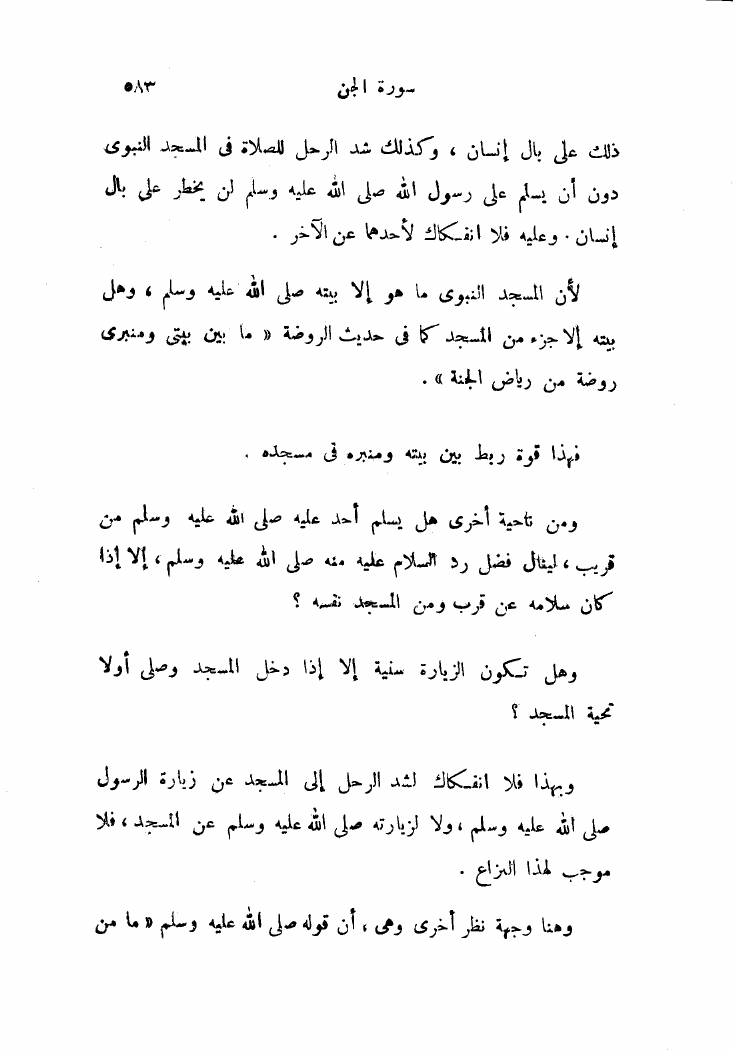 سورة الجن ٥٨٣
ذلك على بال إنسان ، وكذلك شد الرحل للصلاة فى المسجد النبوى
دون أن يسلم على رسول الله صلى الله عليه وسلم لن يخطر على بال
إنسان . وعليه فلا انفكاك لأحدهما عن الآخر .
لأن المسجد النبوى ما هو إلا بيته صلى الله عليه وسلم ، وهل
بيته إلا جزء من المسجد كما فى حديث الروضة « ما بين بيتى ومنبرى
روضة من رياض الجنة » .
فهذا قوة ربط بين بيته ومنبره فى مسجده .
ومن ناحية أخرى هل يسلم أحد عليه صلى الله عليه وسلم من
قريب ، لينال فضل رد السلام عليه منه صلى الله عليه وسلم ، إلا إذا
كان سلامه عن قرب ومن المسجد نفسه ؟
وهل تكون الزيارة سنية إلا إذا دخل المسجد وصلى أولا
تحية المسجد ؟
وبهذا فلا انفكاك لشد الرحل إلى المسجد عن زيارة الرسول
صلى الله عليه وسلم ، ولا لزيارته صلى الله عليه وسلم عن المسجد ، فلا
موجب لهذا النزاع .
وهنا وجهة نظر أخرى وهى ، أن قوله صلى الله عليه وسلم « ما من